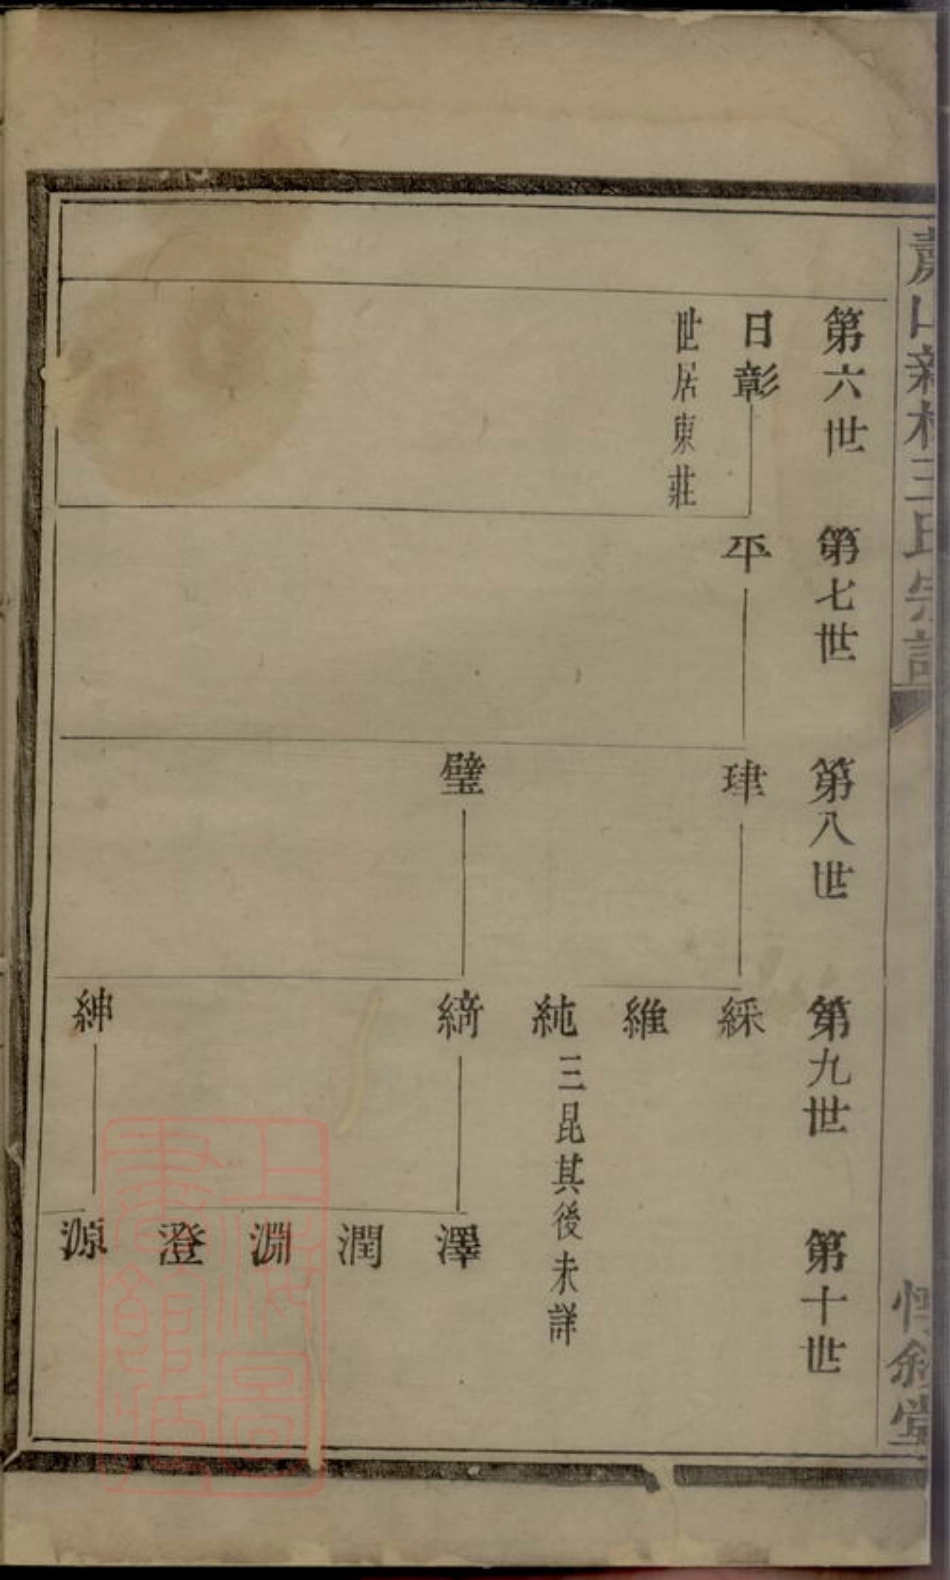 蕭山新村王氏宗譜
惇敘堂
第六世
第七世
第八世
第九世
第十世
日彰
世居東莊
平
肂
璧
綵
維
純
三昆其後未詳
紳
澤
潤
淵
澄
源
上海圖
書館藏